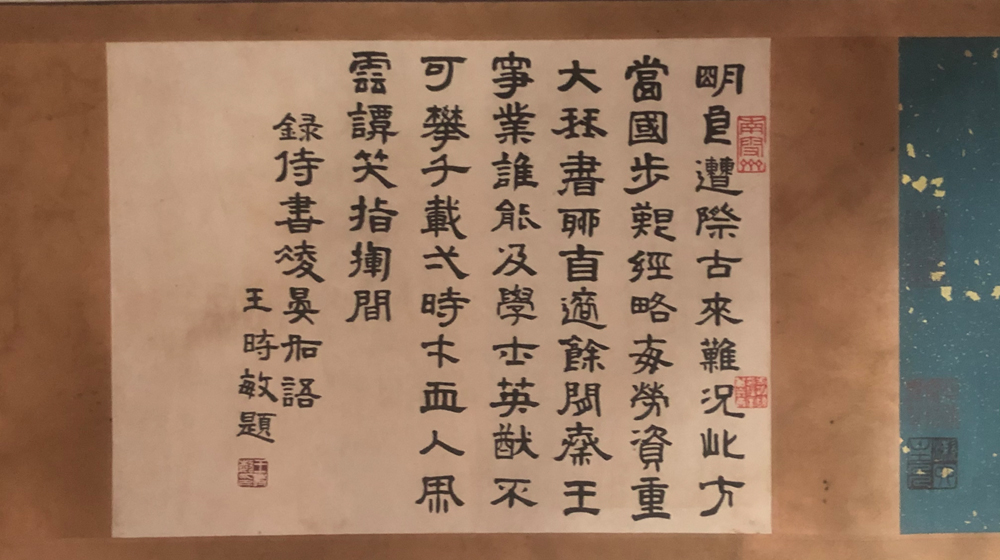 明良遭際古來難況此方
當國步艱經略每勞資重
大珡書聊自適餘閒秦王
事業誰能及學士英猷不
可攀千載弌時才人風
雲譚笑指揮間
錄侍書凌晏如語
王時敏題